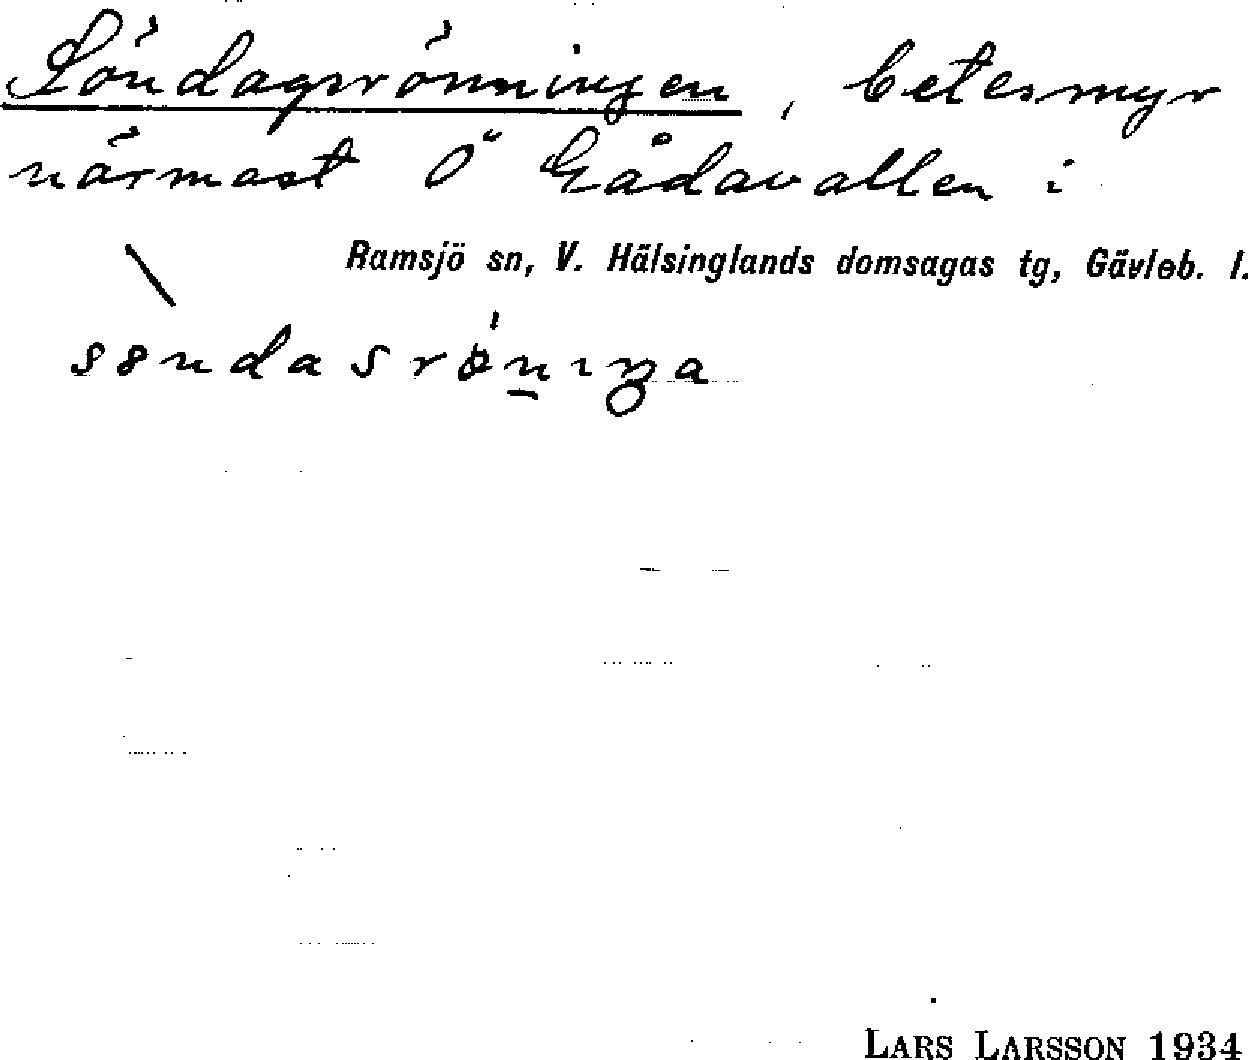 Söndagsrönningen, betesmyr
närmast Ö Gådavallen i
Ramsjö sn, V. Hälsinglands domsagas tg, Gävleb. l.
LARS LARSSON 1934